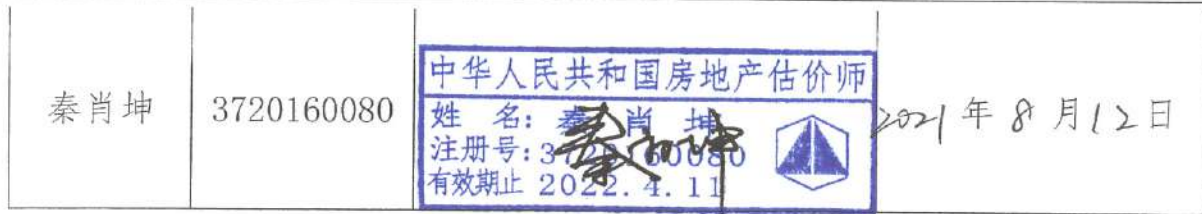 秦肖坤
3720160080
中华人民共和国房地产估价师
姓 名: 秦肖坤
注册号: 3720160080
有效期止 2022.4.11
秦肖坤
2021年8月12日